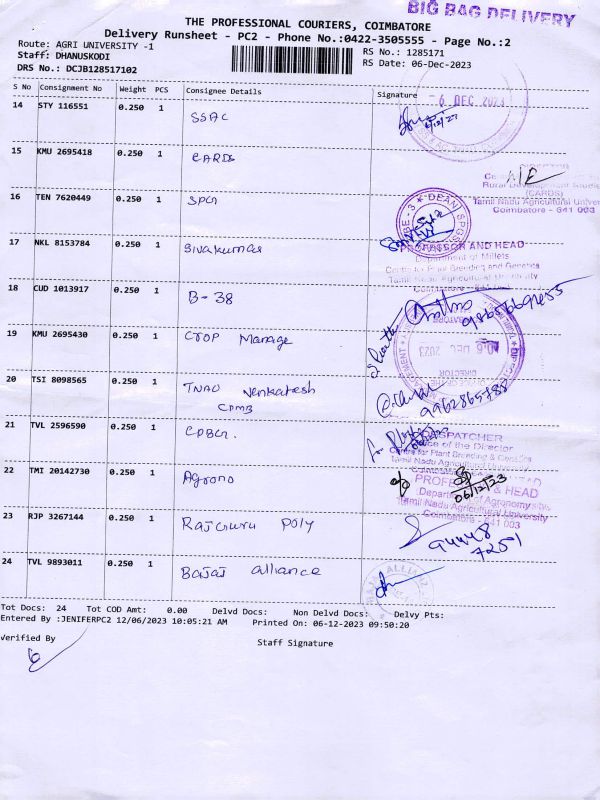 BIG BAG DELIVERY
THE PROFESSIONAL COURIERS, COIMBATORE
Delivery Runsheet - PC2 - Phone No.:0422-3505555 - Page No.:2
Route: AGRI UNIVERSITY -1
RS No.: 1285171
Staff: DHANUSKODI
RS Date: 06-Dec-2023
DRS No.: DCJB128517102
S No Consignment No Weight PCS Consignee Details Signature
14 STY 116551 0.250 1 SSAC
6 DEC 2023
15 KMU 2695418 0.250 1 CARDS
DIRECTOR
Rural Development Studies
(CARDS)
Tamil Nadu Agricultural Univer
Coimbatore - 641 003
16 TEN 7620449 0.250 1 SPGI
DEAN SPGS
17 NKL 8153784 0.250 1 Sivakumar
PROFESSOR AND HEAD
Department of Millets
Centre for Plant Breeding and Genetics
Tamil Nadu Agricultural University
18 CUD 1013917 0.250 1 B-38
19 KMU 2695430 0.250 1 CTOP Manage
06 DEC 2023
DIRECTOR
20 TSI 8098565 0.250 1 TNAU Venkatesh
CPMB
9962865788
21 TVL 2596590 0.250 1 CPBG.
DESPATCHER
Office of the Director
Centre for Plant Breeding & Genetics
Tamil Nadu Agricultural University
22 TMI 20142730 0.250 1 Agrono
06/12/23
PROFESSOR & HEAD
Department of Agronomy
Tamil Nadu Agricultural University
Coimbatore - 641 003
23 RJP 3267144 0.250 1 Rajguru Poly
94448
7251
24 TVL 9893011 0.250 1 Bajaj alliance
Tot Docs: 24 Tot COD Amt: 0.00 Delvd Docs: Non Delvd Docs: Delvy Pts:
Entered By :JENIFERPC2 12/06/2023 10:05:21 AM Printed On: 06-12-2023 09:50:20
Verified By
Staff Signature